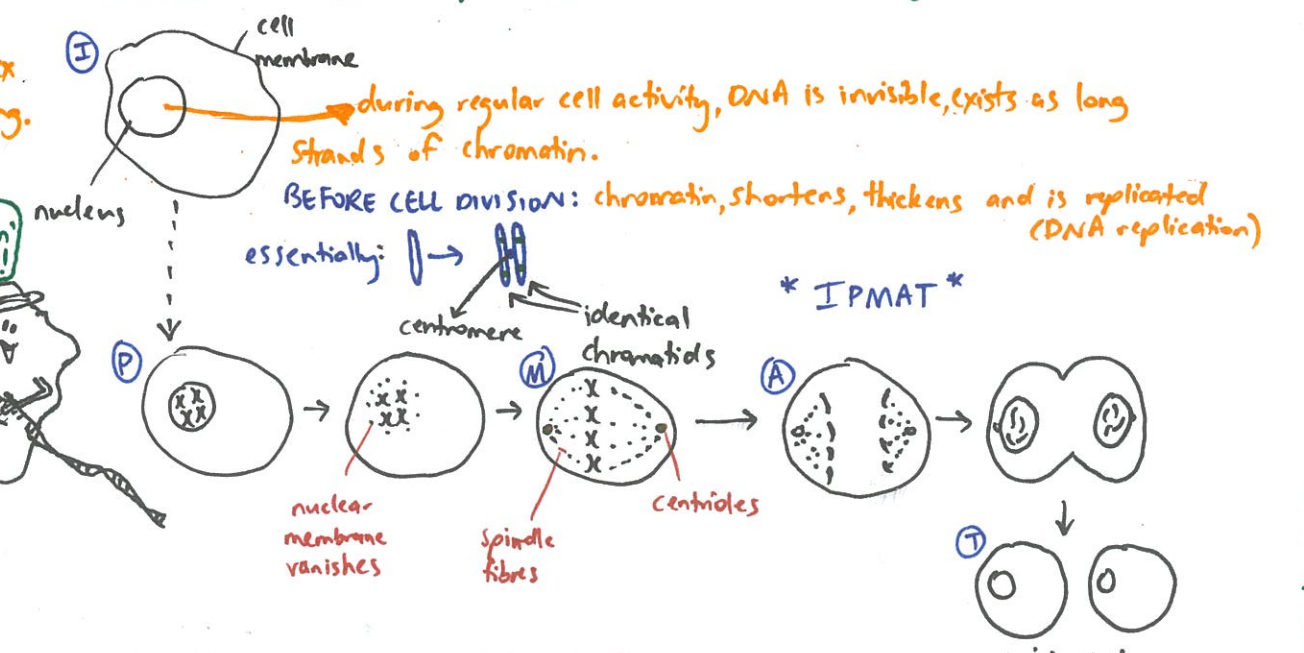 I
cell
membrane
during regular cell activity, DNA is invisible, exists as long
strands of chromatin.
nucleus
BEFORE CELL DIVISION: chromatin, shortens, thickens and is replicated
(DNA replication)
essentially:
centromere
identical
chromatids
* IPMAT *
P
M
A
nuclear
membrane
vanishes
spindle
fibres
centrioles
T